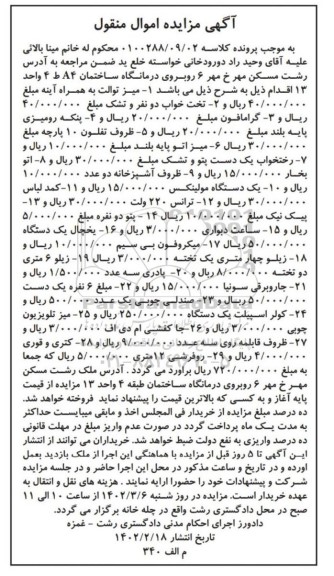 آگهی مزایده اموال منقول
به موجب پرونده کلاسه ۰۱۰۰۲۸۸/۰۹/۰۲ محکوم له خانم مینا بالائی
علیه آقای وحید راد دورودخانی خواسته خلع ید ضمن مراجعه به آدرس
رشت مسکن مهر خ مهر ۶ روبروی درمانگاه ساختمان A۴ ط ۴ واحد
۱۳ اقدام ذیل به شرح ذیل می باشد ۱- میز توالت به همراه آینه مبلغ
۴۰/۰۰۰/۰۰۰ ریال و ۲- تخت خواب دو نفر و تشک مبلغ ۴۰/۰۰۰/۰۰۰
ریال و ۳- گرامافون مبلغ ۲۰/۰۰۰/۰۰۰ ریال و ۴- پنکه رومیزی
پایه بلند مبلغ ۲۰/۰۰۰/۰۰۰ ریال و ۵- ظروف تفلون ۱۰ پارچه مبلغ
۳۰/۰۰۰/۰۰۰ ریال ۶- میز اتو پایه بلند مبلغ ۱۰/۰۰۰/۰۰۰ ریال و
۷- رختخواب یک دست پتو و تشک مبلغ ۳۰/۰۰۰/۰۰۰ ریال و ۸- اتو
بخار ۱۵/۰۰۰/۰۰۰ ریال و ۹- ظروف آشپزخانه دو عدد ۱۰/۰۰۰/۰۰۰
ریال و ۱۰- یک دستگاه مولینکس ۱۵/۰۰۰/۰۰۰ ریال و ۱۱- کمد لباس
۳۰/۰۰۰/۰۰۰ ریال و ۱۲- ترانس ۲۲۰ ولت ۳۰/۰۰۰/۰۰۰ ریال و ۱۳-
پیک نیک مبلغ ۱۰/۰۰۰/۰۰۰ ریال ۱۴- پتو دو نفره مبلغ ۵/۰۰۰/۰۰۰
ریال و ۱۵- ساعت دیواری ۳/۰۰۰/۰۰۰ ریال و ۱۶- یخچال یک دستگاه
۵۰/۰۰۰/۰۰۰ ریال ۱۷- میکروفون بی سیم ۱۰/۰۰۰/۰۰۰ ریال و
۱۸- زیلو چهار متری یک تخته ۳/۰۰۰/۰۰۰ ریال ۱۹- زیلو ۶ متری
دو تخته ۸/۰۰۰/۰۰۰ ریال و ۲۰- پادری سه عدد ۱/۵۰۰/۰۰۰ ریال و
۲۱- جاروبرقی سونیا ۱۵/۰۰۰/۰۰۰ ریال و ۲۲- مبلغ ۶ نفره یک دست
۵۰/۰۰۰/۰۰۰ ریال و ۲۳- صندلی چوبی یک عدد ۵۰۰/۰۰۰ ریال و
۲۴- کولر اسپیلت یک دستگاه ۲۵۰/۰۰۰/۰۰۰ ریال و ۲۵- میز تلویزیون
چوبی ۳/۰۰۰/۰۰۰ ریال و ۲۶- جا کفشی ام دی اف ۳/۰۰۰/۰۰۰ ریال و
۲۷- ظروف قابلمه روی سه عدد ۹/۰۰۰/۰۰۰ ریال و ۲۸- کتری و قوری
۴/۰۰۰/۰۰۰ ریال و ۲۹- روفرشی ۱۲ متری ۵/۰۰۰/۰۰۰ ریال که جمعا
به مبلغ ۷۲۰/۰۰۰/۰۰۰ ریال برآورد می گردد . آدرس ملک رشت مسکن
مهر خ مهر ۶ روبروی درمانگاه ساختمان طبقه ۴ واحد ۱۳ مزایده از قیمت
پایه آغاز و به کسی که بالاترین قیمت را پیشنهاد نماید فروخته خواهد شد.
ده درصد مبلغ مزایده از خریدار فی المجلس اخذ و مابقی میبایست حداکثر
به مدت یک ماه پرداخت گردد در صورت عدم واریز مبلغ در مهلت قانونی
ده درصد واریزی به نفع دولت ضبط خواهد شد. خریداران می توانند از انتشار
این آگهی تا ۵ روز قبل از مزایده با هماهنگی این اجرا از ملک بازدید بعمل
اورده و در تاریخ و ساعت مذکور در محل این اجرا حاضر و در جلسه مزایده
شرکت و پیشنهادات خود را حضورا ارایه نمایند . هزینه های نقل و انتقال به
عهده خریدار است. مزایده در روز شنبه ۱۴۰۲/۳/۶ از ساعت ۱۰ الی ۱۱
صبح در محل دادگستری رشت واقع در چله خانه برگزار می گردد.
دادورز اجرای احکام مدنی دادگستری رشت - غمزه
تاریخ انتشار ۱۴۰۲/۲/۱۸
م الف ۳۴۰